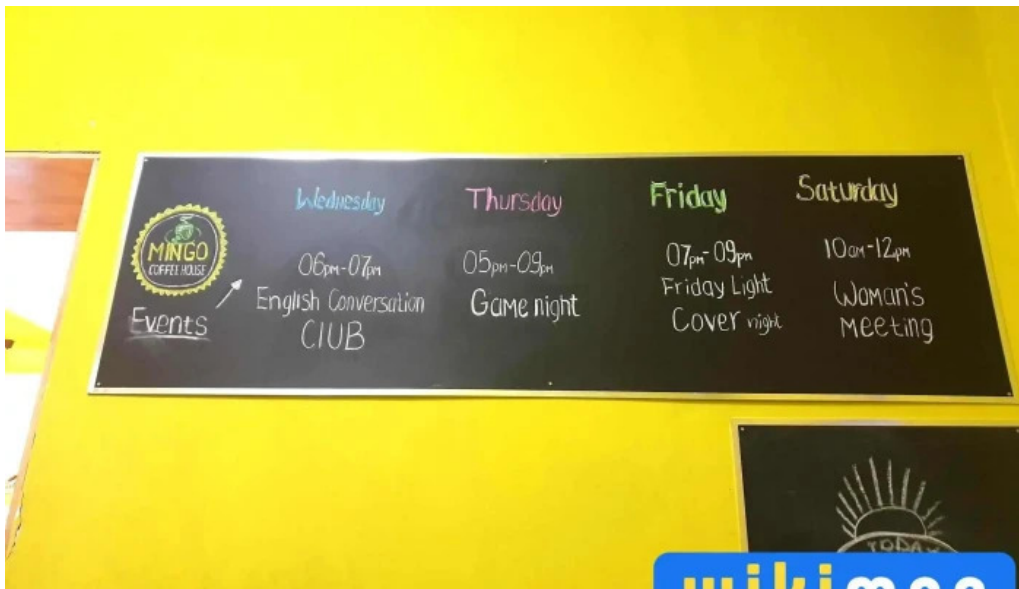 MINGO
COFFEE HOUSE
Events
Wednesday
06pm-07pm
English Conversation
ClUB
Thursday
05pm-09pm
Game night
Friday
07pm-09pm
Friday Light
Cover night
Saturday
10am-12pm
Woman's
Meeting
TODAY